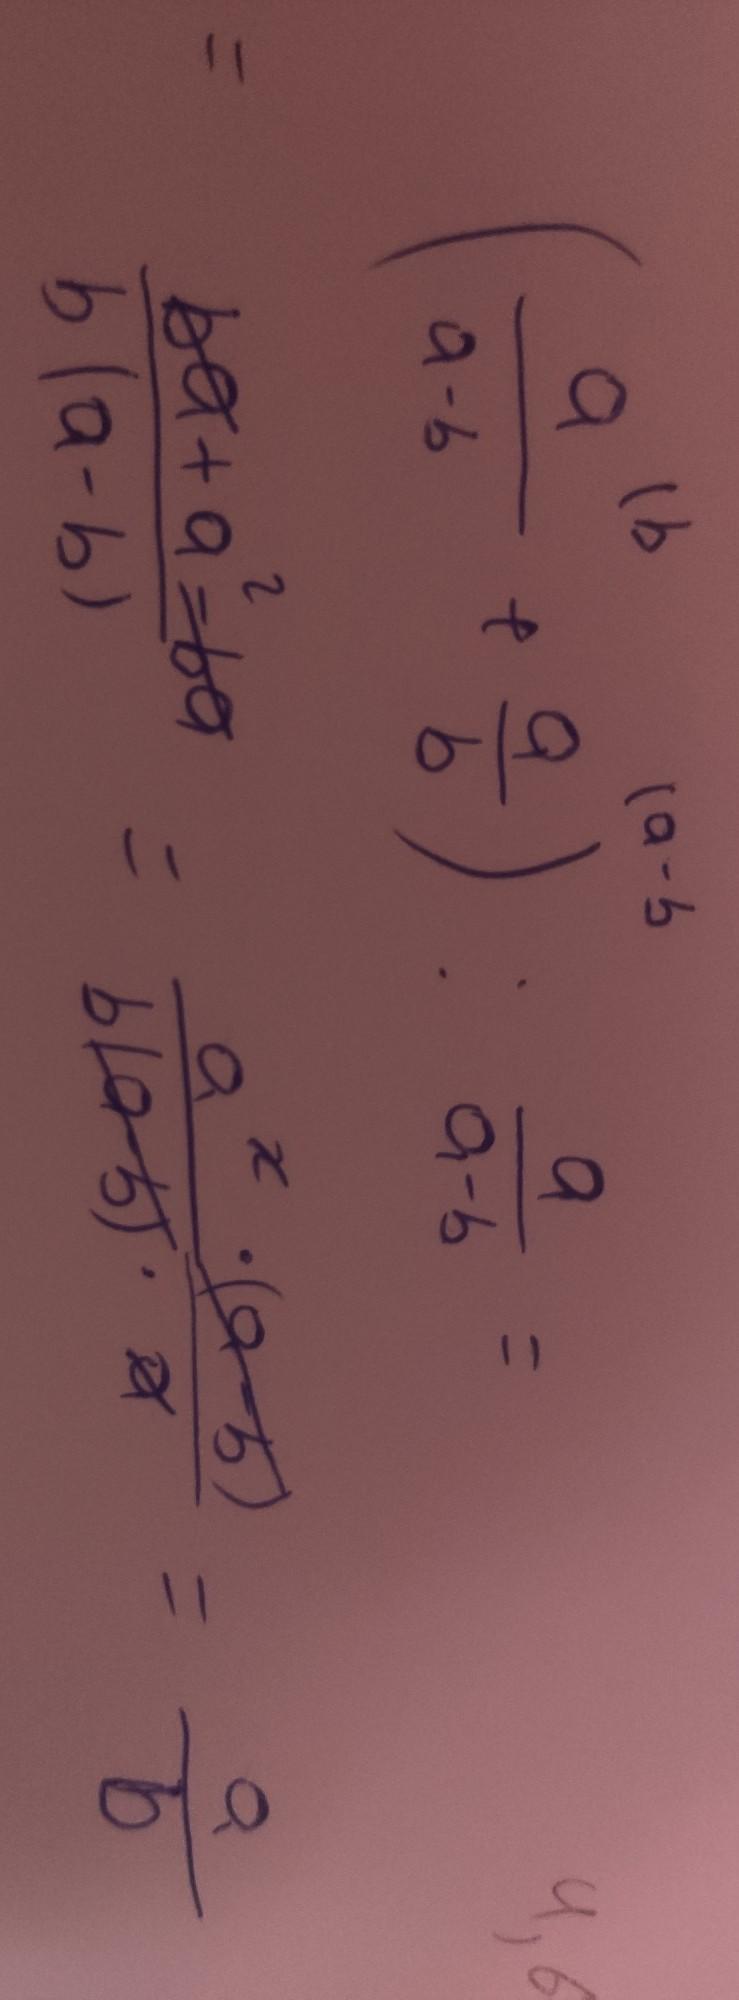 ( a/(a-b) (b + a/b (a-b ) : a/(a-b) =
= (ba + a² - ba)/(b(a-b)) = (a² · (a-b))/(b(a-b) · a) = a/b